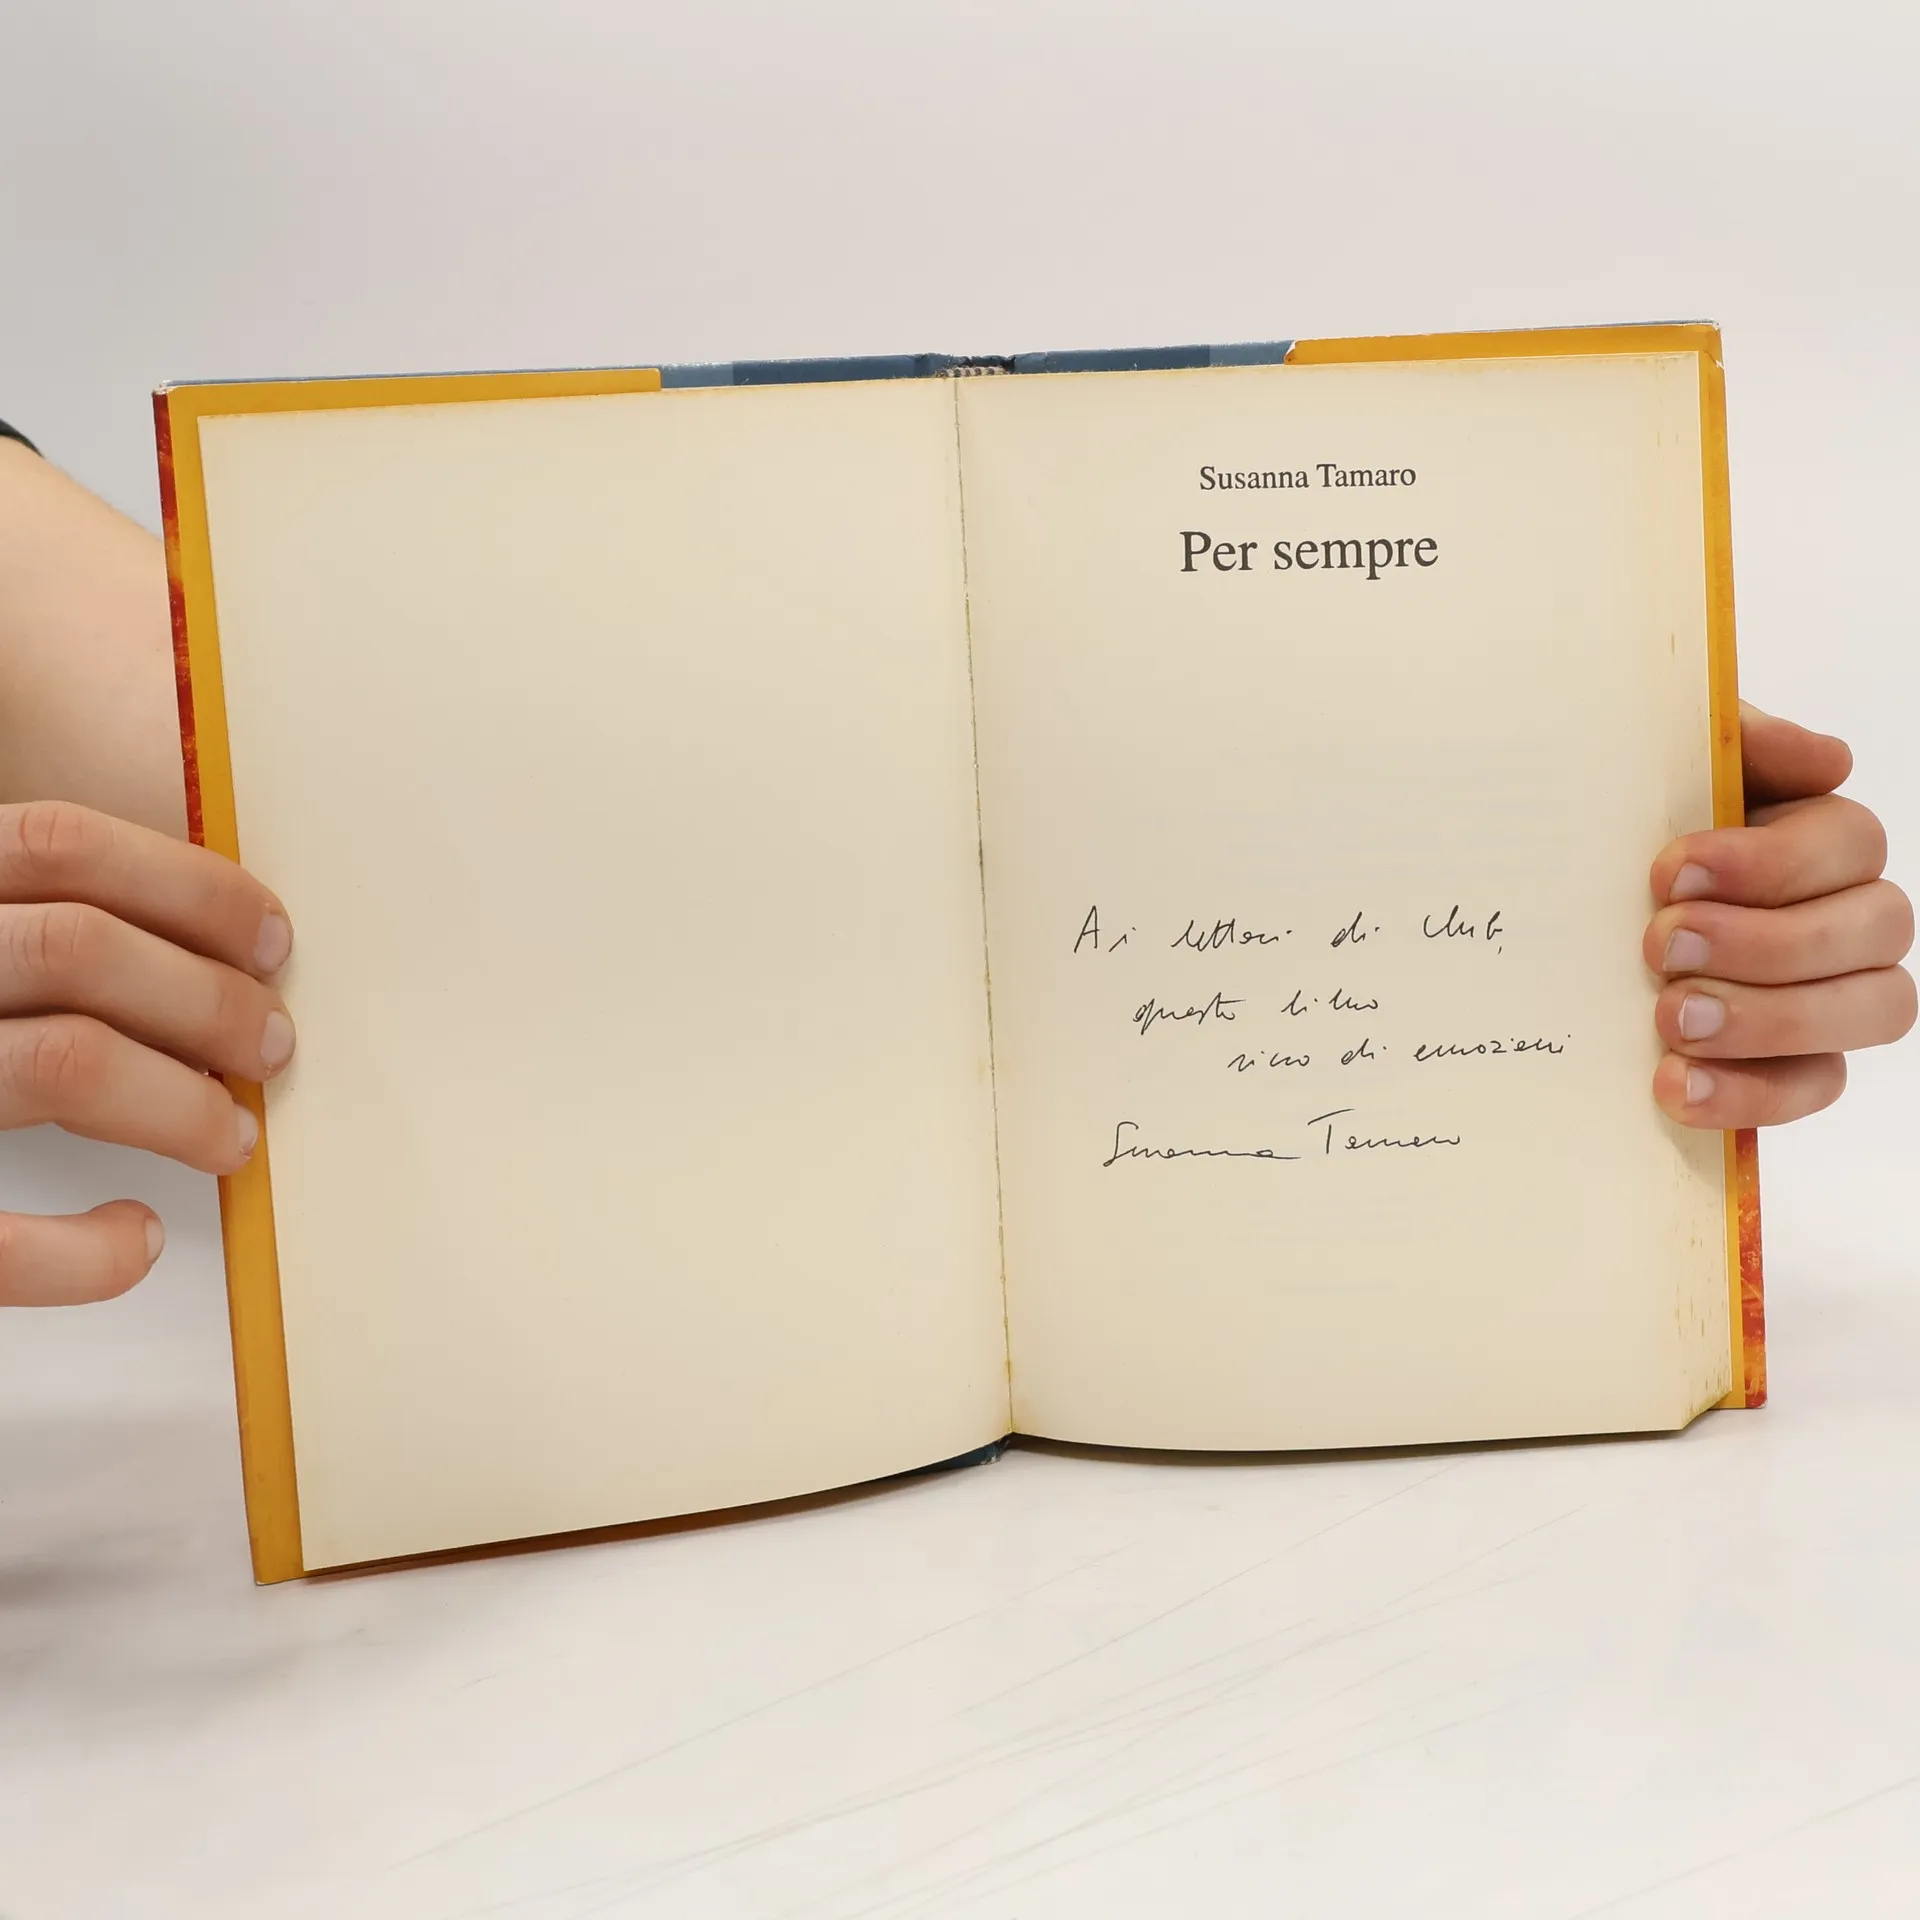 Susanna Tamaro
Per sempre
Ai lettori di Club,
questo libro
ricco di emozioni
Susanna Tamaro